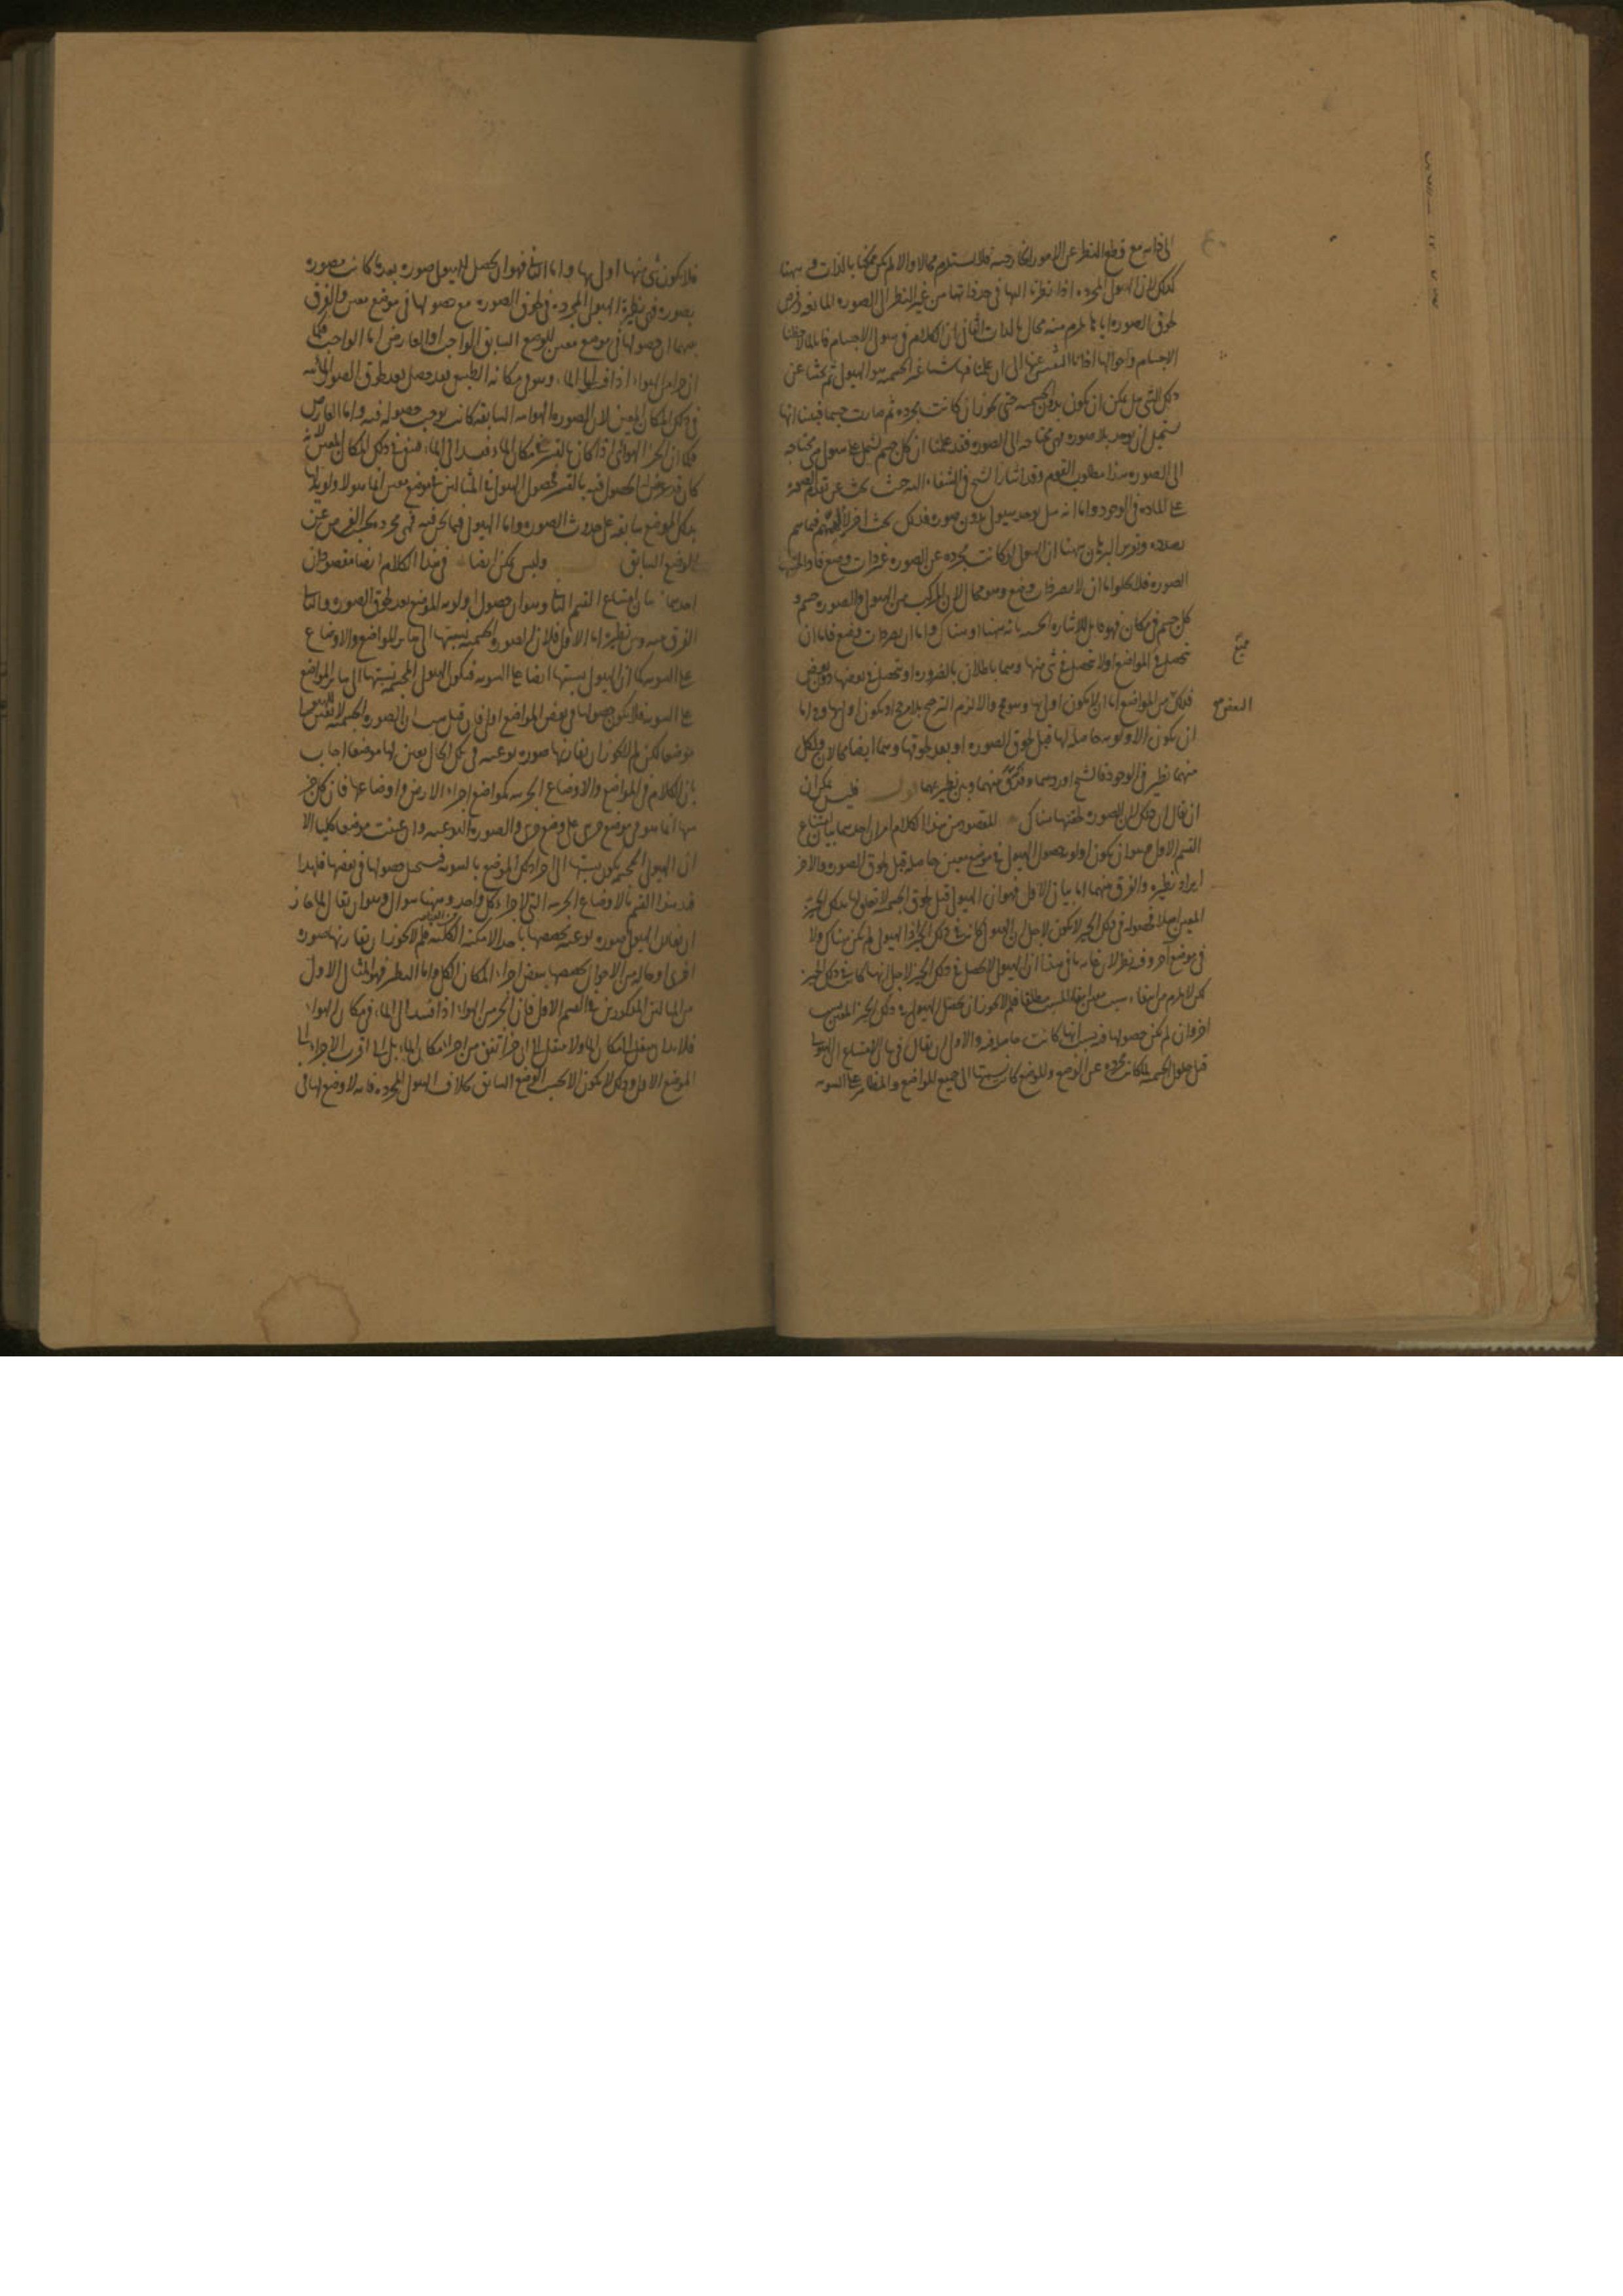 الى ذاته مع قطع النظر عن الامور الخارجية فلا يستلزم محالا والا لم يكن ممكنا بالذات وههنا
كذلك لان الهيولى المجردة اذا نظرنا اليها في حد ذاتها من غير النظر الى الصورة المانعة وفرض
لحوق الصورة اياها يلزم منه محال بالذات الثاني ان الكلام في هيولى الاجسام فانا لما لاحظنا
الاجسام واحوالها
ذلك الشي هل يمكن ان يكون بدون الجسمية حتى يجوز ان كانت مجردة ثم صارت جسما فبينا انها
يستحيل ان يوجد بلا صورة فهي محتاجة الى الصورة فقد علمنا ان كل جسم يشتمل على هيولى هي محتاجة
الى الصورة هذا مطلوب القوم وقد اشار الشيخ في الشفاء اليه حيث بحث عن تقدم الصورة
على المادة في الوجود واما انه هل يوجد هيولى بدون صورة فذلك بحث اخر لا
بصدده وتوجيه البرهان ههنا ان الهيولى لو كانت مجردة عن الصورة غير ذات وضع فاذا لحقتها
الصورة فلا يخلو اما ان لا يصير ذات وضع وهو محال لان المركب من الهيولى والصورة جسم و
كل جسم في مكان فهو قابل للاشارة الحسية بانه ههنا او هناك واما ان يصير ذات وضع فاما ان
تحصل في المواضع او لا تحصل في شي منها وهما باطلان بالضرورة او تحصل في بعضها دون بعض
فذلك من المواضع اما ان لا يكون اولى بها وهو محال والا لزم الترجيح بلا مرجح او يكون اولى بها وح اما
ان يكون الاولوية حاصلة لها قبل لحوق الصورة او بعد لحوقها وهما ايضا محالان ولكل
منهما نظير في الوجود فالشيخ اوردهما وفرق بينهما وبين نظيريهما قوله فليس يمكن ان
ان يقال ان ذلك لان الصورة لحقتها هناك المقصود من هذا الكلام امران احدهما بيان امتناع
القسم الاول وهو ان يكون اولوية حصول الهيولى في موضع معين حاصلة قبل لحوق الصورة والاخر
ايراد نظيره والفرق بينهما اما بيان الاول فهو ان الهيولى قبل لحوق الجسمية لا تعلق لها بذلك الحيز
المعين اصلا فحصوله في ذلك الحيز لا يكون لاجل ان الهيولى كانت في ذلك الحيز اذ الهيولى لم يكن هناك ولا
في موضع آخر وفيه نظر لان غاية ما في هذا ان الهيولى لا تحصل في ذلك الحيز لاجل انها كانت في ذلك الحيز
لكن لا يلزم من انتفاء سبب معين انتفاء المسبب مطلقا فلم لا يجوز ان يحصل الهيولى في ذلك الحيز المعين بسبب
اخر وان لم يكن حصولها فيه بسبب انها كانت حاصلة فيه والاولى ان يقال في بيان الامتناع ان الهيولى
قبل حلول الجسمية لما كانت مجردة عن الوضع والموضع كانت نسبتها الى جميع المواضع والمقادير على السوية
ممتنع
المفروض
فلا يكون شي منها اولى بها واما الثاني فهو ان يحصل للهيولى صورة بعد ما كانت مصورة
بصورة فهي نظيرة الهيولى المجردة في لحوق الصورة مع حصولها في موضع معين والفرق
بينهما ان حصولها في موضع معين للوضع السابق الواجب او العارض اما الواجب فكما
في ذلك المكان المعين لان الصورة الهوائية السابقة كانت يوجب حصوله فيه واما العارض
فكما ان الجزء الهوائي اذا كان بالقسر في مكان الماء وفسد الى الماء فبقى في ذلك المكان المعين لانه
كان قد عرض له الحصول فيه بالقسر فحصول الهيولى في المثالين في موضع معين انما هو لاولوية لها
بذلك الموضع سابقة على حدوث الصورة واما الهيولى فيما نحن فيه فهي مجردة بحسب الفرض عن
الوضع السابق وليس يمكن ايضا في هذا الكلام ايضا مقصودان
احدهما بيان امتناع القسم الثاني وهو ان حصول اولوية الموضع بعد لحوق الصورة والثاني
الفرق بينه وبين نظيره اما الاول فلان الصورة الجسمية نسبتها الى سائر المواضع والاوضاع
على السوية كما ان الهيولى نسبتها ايضا على السوية فيكون الهيولى المجسمة نسبتها الى سائر المواضع
على السوية فلا يكون حصولها في بعض المواضع اولى فان قيل هب ان الصورة الجسمية لا تعين للهيولى
موضعا لكن لم لا يجوز ان يقارنها صورة نوعية في تلك الحال يعين لها موضعا اجاب
بان الكلام في المواضع والاوضاع الجزئية كمواضع اجزاء الارض واوضاعها فان كل جزء
منها انما هو في موضع جزئي على وضع جزئي والصورة النوعية وان عينت موضعا كليا الا
ان الهيولى المجسمة يكون نسبتها الى اجزاء ذلك الموضع بالسوية فيستحيل حصولها في بعضها فلهذا
قيد هذا القسم بالاوضاع الجزئية التي لاجزاء كل واحد وههنا سوال وهو ان يقال لما جاز
ان يقارن الهيولى صورة نوعية تخصصها باحد الامكنة الكلية فلم لا يجوز ان يقارنها صورة
اخرى او حالة من الاحوال تخصصها ببعض اجزاء المكان الكلي واما النظير فهو المثال الاول
من المثالين المذكورين في القسم الاول فان الجزء من الهواء اذا فسد الى الماء في مكان الهواء
فلا بد ان ينتقل الى مكان الماء ولا ينتقل الى اي جزء اتفق من اجزاء مكان الماء بل الى اقرب الاجزاء الى
الموضع الاول وذلك لا يكون الا بحسب الوضع السابق بخلاف الهيولى المجردة فانه لا وضع لها في